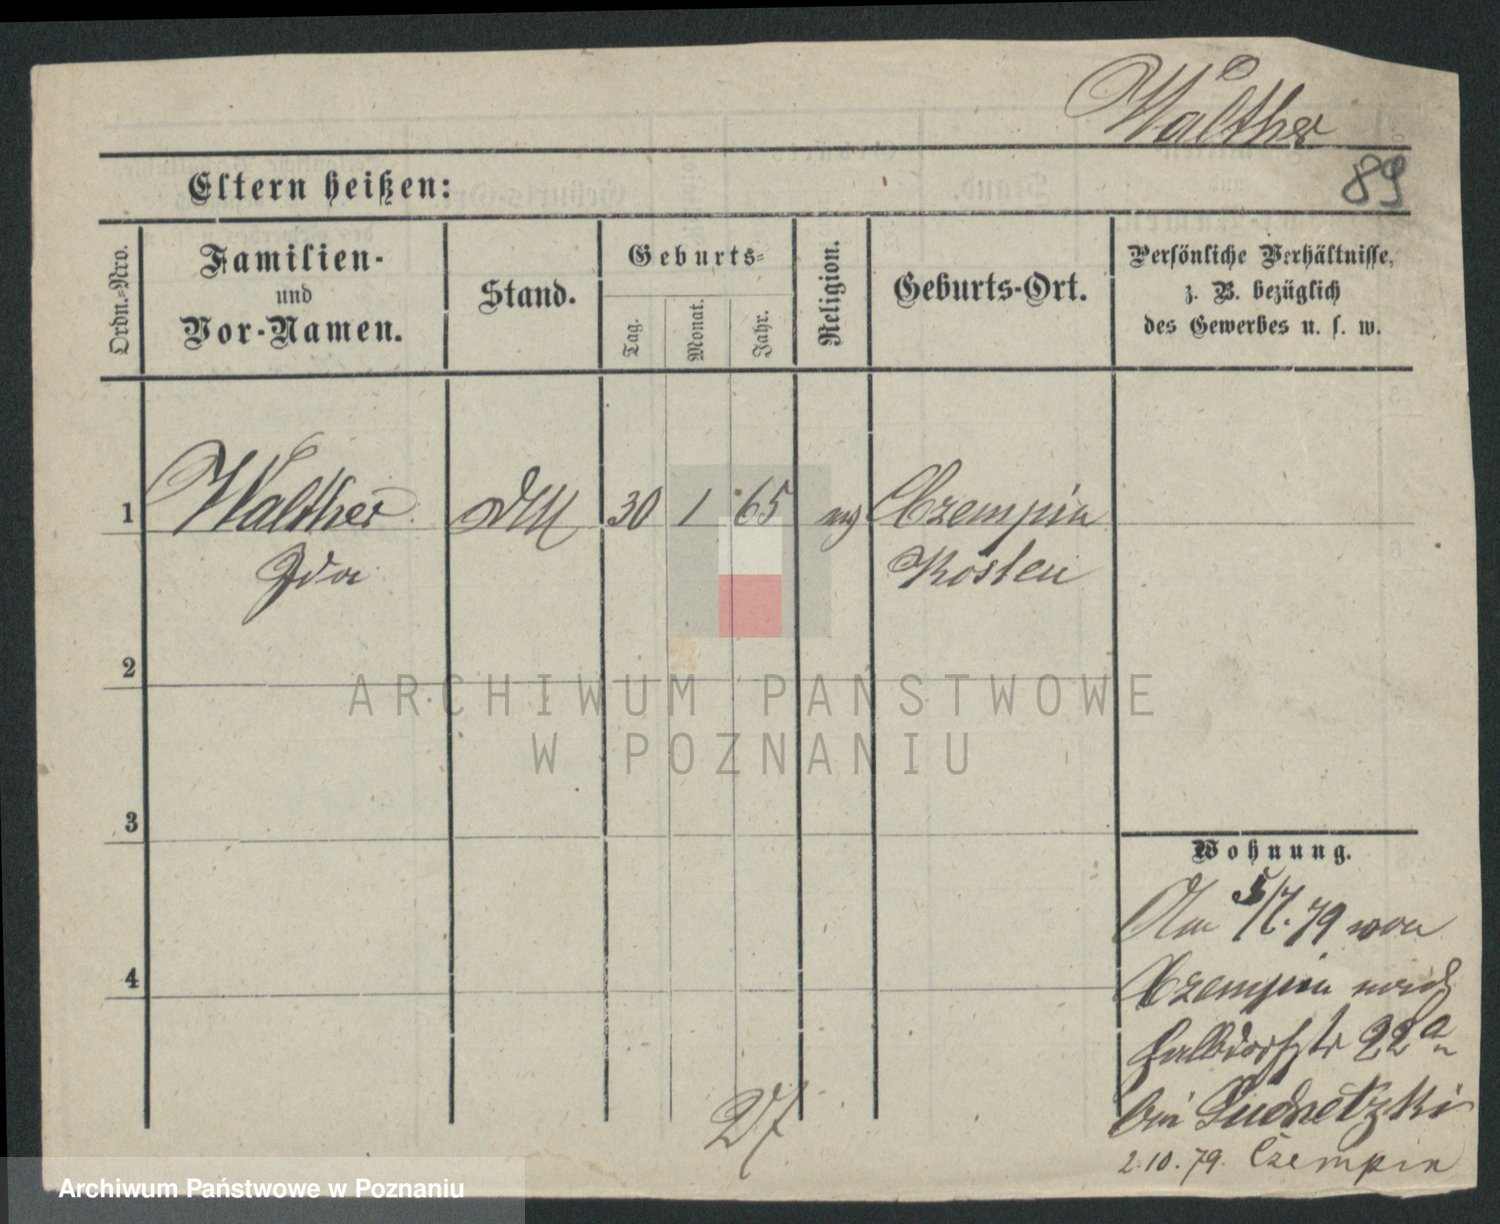 Walther
89
Eltern heißen:
Ordn.-Nro.
Familien-
und
Vor-Namen.
Stand.
Geburts-
Tag.
Monat.
Jahr.
Religion.
Geburts-Ort.
Persönliche Verhältnisse,
z. B. bezüglich
des Gewerbes u. s. w.
1 Walther 30 1 65 Czempin
Ida Kosten
2
ARCHIWUM PAŃSTWOWE
W POZNANIU
3
Wohnung.
Am 5/7.79 von
4
Czempin nach
Halbdorfstr 22a
bei
2.10.79. Czempin
Archiwum Państwowe w Poznaniu